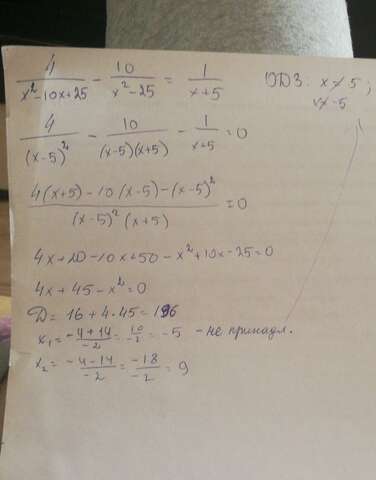 4/(x²-10x+25) - 10/(x²-25) = 1/(x+5) ОДЗ: x ≠ 5;
x ≠ -5
4/(x-5)² - 10/((x-5)(x+5)) - 1/(x+5) = 0
(4(x+5) - 10(x-5) - (x-5)²)/((x-5)²(x+5)) = 0
4x+20-10x+50-x²+10x-25=0
4x+45-x²=0
D = 16+4·45=196
x₁ = (-4+14)/-2 = 10/-2 = -5 - не принадл.
x₂ = (-4-14)/-2 = -18/-2 = 9